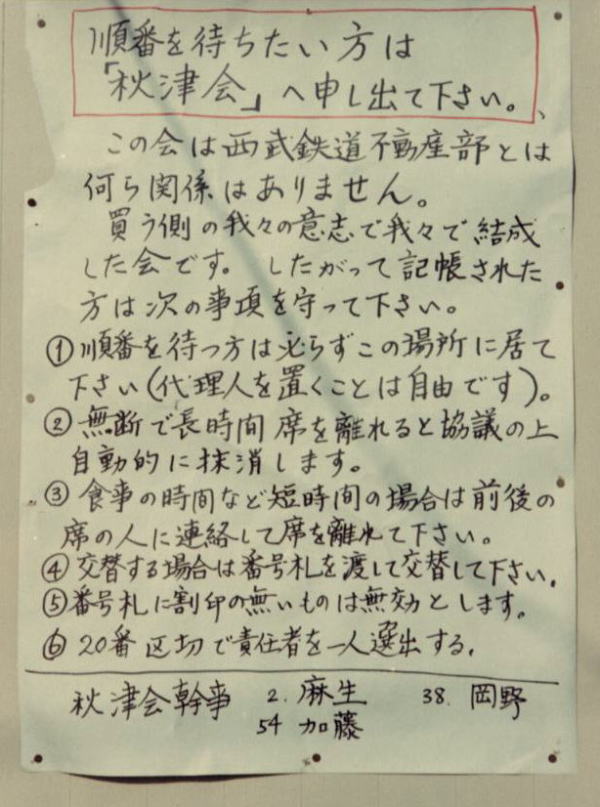 順番を待ちたい方は
「秋津会」へ申し出て下さい。
この会は西武鉄道不動産部とは
何ら関係はありません。
買う側の我々の意志で我々で結成
した会です。したがって記帳された
方は次の事項を守って下さい。
①順番を待つ方は必らずこの場所に居て
下さい(代理人を置くことは自由です)。
②無断で長時間席を離れると協議の上
自動的に抹消します。
③食事の時間など短時間の場合は前後の
席の人に連絡して席を離れて下さい。
④交替する場合は番号札を渡して交替して下さい.
⑤番号札に割印の無いものは無効とします。
⑥20番区切で責任者を一人選出する.
秋津会幹事 2. 麻生 38. 岡野
54 加藤